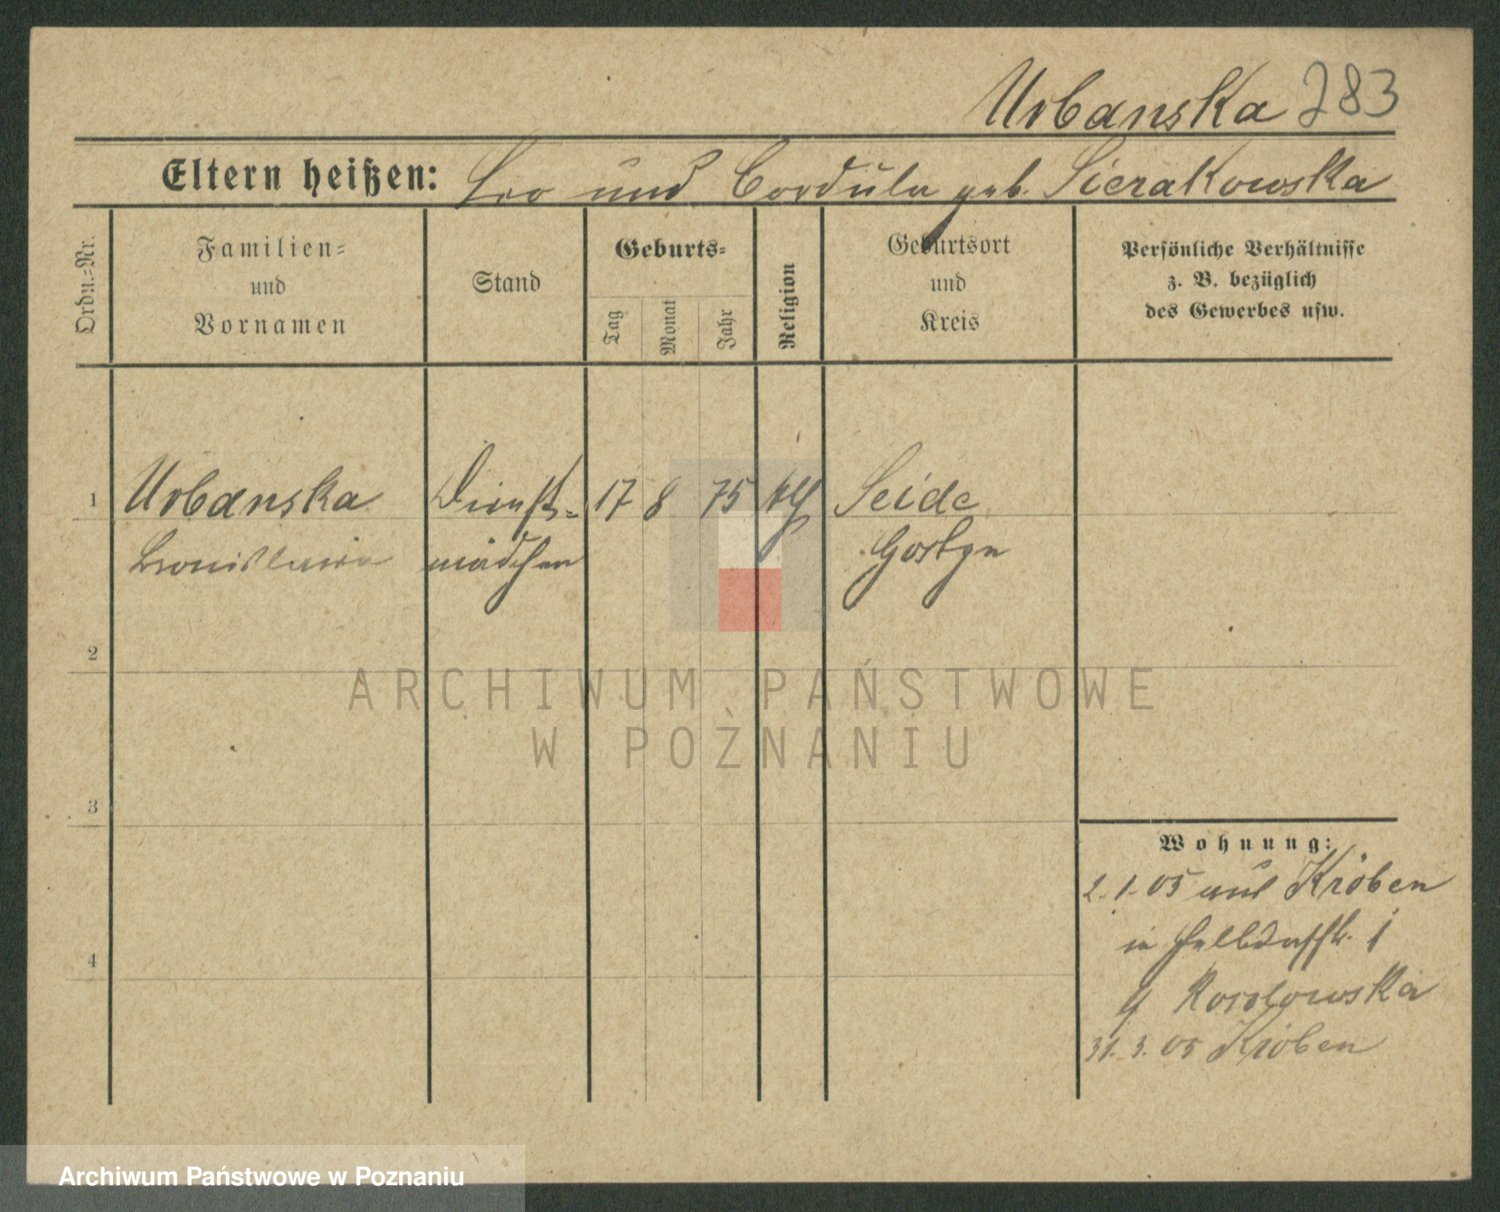 Urbanska 283
Eltern heißen: Leo und Cordula geb. Sierakowska
Ordn.=Nr.
Familien=
und
Vornamen
Stand
Geburts=
Tag
Monat
Jahr
Religion
Geburtsort
und
Kreis
Persönliche Verhältnisse
z. B. bezüglich
des Gewerbes usw.
1 Urbanska Dienst= 17 8 75 kth Seide
Bronislawa mädchen Gostyn
2
3
4
Wohnung:
2.1.05 aus Kröben
in Halbdorfstr. 1
31.3.05 Kröben
ARCHIWUM PAŃSTWOWE
W POZNANIU
Archiwum Państwowe w Poznaniu